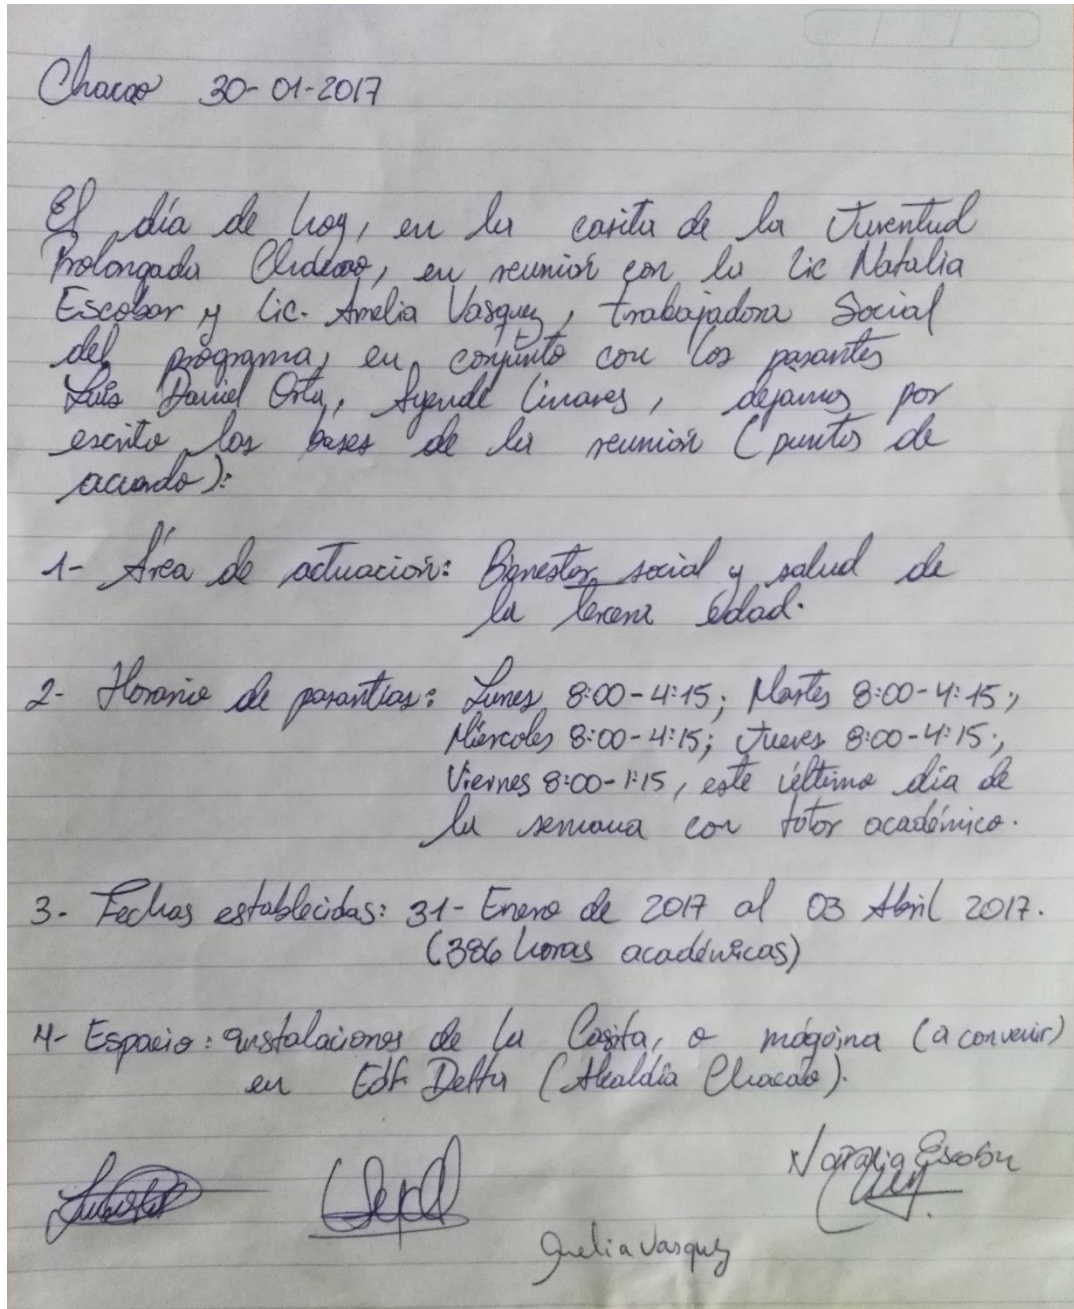 Chacao 30-01-2017
El día de hoy, en la casita de la Juventud
Prolongada Chacao, en reunión con la Lic Natalia
Escobar y Lic. Amelia Vasquez, trabajadora Social
del programa, en conjunto con los pasantes
Luis Daniel Orta, Ayendé Linares, dejamos por
escrito las bases de la reunión (puntos de
acuerdo):
1- Área de actuación: Bienestar social y salud de
la tercera edad.
2- Horario de pasantías: Lunes 8:00-4:15; Martes 8:00-4:15;
Miércoles 8:00-4:15; Jueves 8:00-4:15;
Viernes 8:00-1:15, este último día de
la semana con tutor académico.
3- Fechas establecidas: 31- Enero de 2017 al 03 Abril 2017.
(386 horas académicas)
4- Espacio: instalaciones de la Casita, o (a convenir)
en Edf. Delta (Alcaldía Chacao).
Natalia Escobar
Amelia Vasquez